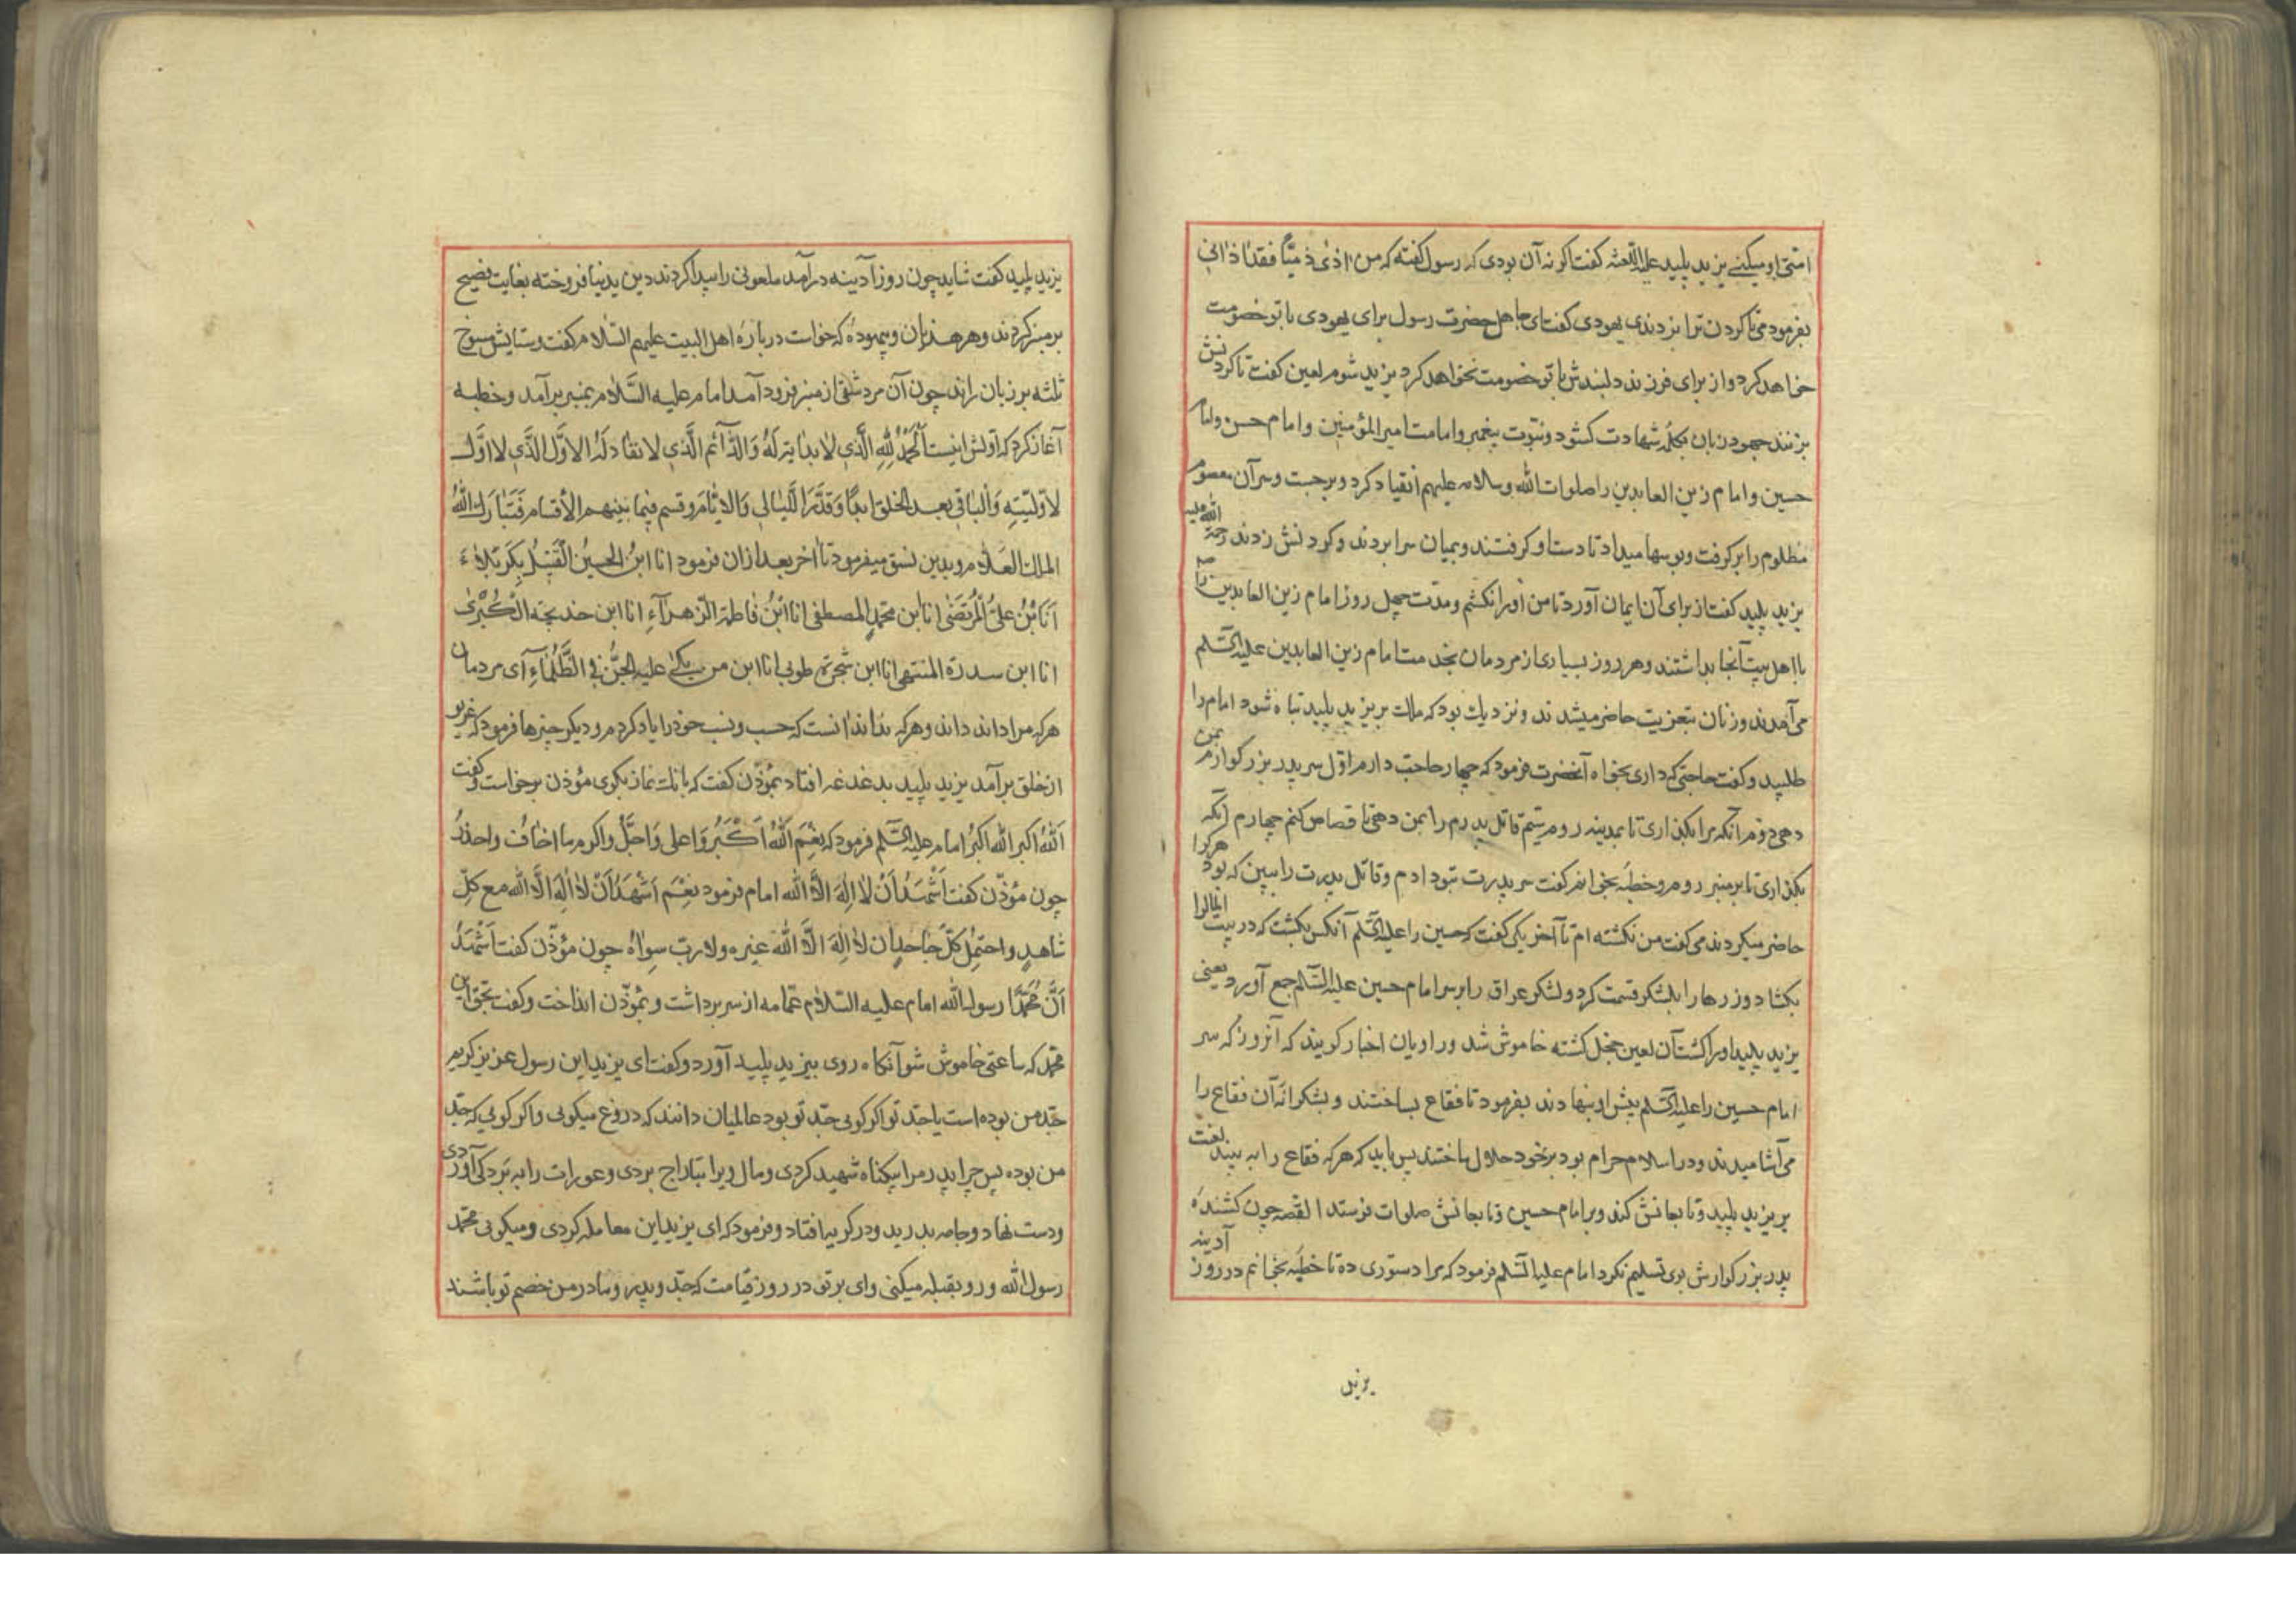 امتی او میکنی یزید پلید علیه اللعنه گفت اگر نه آن بودی که رسول گفته که من اذی ذمیا فقد اذانی
بفرمودمی تا گردن ترا بزدندی یهودی گفت ای جاهل حضرت رسول برای یهودی با تو خصومت
خواهد کرد و از برای فرزند دلبندش با تو خصومت نخواهد کرد یزید شوم لعین گفت تا گردنش
بزنند جهود زبان بکلمه شهادت کشود و نبوت پیغمبر و امامت امیر المؤمنین و امام حسن و امام
حسین و امام زین العابدین را صلوات الله و سلامه علیهم انقیاد کرد و برجست و سر آن معصوم
مظلوم را برگرفت و بوسها میداد تا دست او گرفتند و بمیان سرا بردند و گردنش زدند رحمة الله علیه
یزید پلید گفت از برای آن ایمان آورد تا من او را نکشم و مدت چهل روز امام زین العابدین را
با اهل بیت آنجا بداشتند و هر روز بسیاری از مردمان بخدمت امام زین العابدین علیه السلم
می آمدند و زنان بتعزیت حاضر میشدند و نزدیک بود که ملک بر یزید پلید تباه شود امام را
طلبید و گفت حاجتی که داری بخواه آنحضرت فرمود که چهار حاجت دارم اول سر پدر بزرگوارم بمن
دهی دوم آنکه مرا بگذاری تا بمدینه روم سیم قاتل پدرم را بمن دهی تا قصاص کنم چهارم آنکه
بگذاری تا بر منبر روم و خطبه بخوانم گفت سر پدرت بتو دادم و قاتل پدرت را ببین که بود هر کرا
حاضر میکردند می گفت من نکشته ام تا آخر یکی گفت که حسین را علیه السلم آنکس بکشت که در بیت المال را
بکشاد و زرها را بلشکر قسمت کرد و لشکر عراق را بر سر امام حسین علیه السلم جمع آورد یعنی
یزید پلید او را کشت آن لعین خجل کشته خاموش شد و راویان اخبار گویند که آنروز که سر
امام حسین را علیه السلم پیش او بنهادند بفرمود تا فقاع بساختند و بشکرانه آن فقاع را
می آشامیدند و در اسلام حرام بود بر خود حلال ساختند پس باید که هر که فقاع را به بیند لعنت
بر یزید پلید و تابعانش کند و بر امام حسین و تابعانش صلوات فرستد القصه چون کشنده
پدر بزرگوارش بوی تسلیم نکرد امام علیه السلم فرمود که مرا دستوری ده تا خطبه بخوانم در روز آدینه
یزید
یزید پلید گفت شاید چون روز آدینه درآمد ملعونی را پیدا کردند دین بدنیا فروخته بغایت فصیح
بر منبر کردند و هر هذیان و بیهوده که خواست درباره اهل البیت علیهم السلام گفت و ستایش شیوخ
ثلثه بر زبان راند چون آن مرد شقی از منبر فرود آمد امام علیه السلام بمنبر برآمد و خطبه
آغاز کرد که اولش اینست اَلْحَمْدُ لِلّهِ الَّذی لا بدایة لَهُ وَالدّآئم الَّذی لا نفاد لَهُ الاوَّل الَّذی لا اوَّل
لاوّلیّتِهِ وَالباقی بعد الخلق ابدًا وَقدَّرَ اللَّیالی وَالایّام وقسم فیما بینهم الاَقسام فَتَبارَكَ اللهُ
الملك العلّام و بدین نسق میفرمود تا آخر بعد ازان فرمود انا ابنُ الحسینُ القَتیلُ بِکَربَلاءَ
اَنَا بْنُ علیُّ المُرتَضیٰ انا ابن محمدٍ المصطفی انا ابنُ فاطمة الزهرآءِ انا ابن خدیجة الکُبْریٰ
انا ابن سدرة المنتهی انا ابن شجرة طوبی انا ابن من بکیٰ علیه الجنُّ فی الظَّلْمآءِ آی مردمان
هر که مرا داند داند و هر که نداند انست که حسب و نسب خود را یاد کردم و دیگر چیزها فرمود که غریو
از خلق برآمد یزید پلید بدغدغه افتاد بمؤذّن گفت که بانك نماز بگوی مؤذن برخواست و گفت
اَللهُ اکبر الله اکبرُ امام علیه السلم فرمود که نِعْمَ اَللهُ اَکْبَرُ وَاعلی وَاجَلُّ واکرم مما اخافُ واحذرُ
چون مؤذّن گفت اَشْهَدُ اَنْ لا اِلٰهَ الاَّ الله امام فرمود نِعْمَ اَشْهَدُ اَنْ لا اِلٰهَ الَّا الله مع کلّ
شاهدٍ واحتمل کلّ جاحدٍ ان لا اِلٰهَ الَّا الله غیره ولا ربّ سِواهُ چون مؤذّن گفت اَشْهَدُ
اَنَّ مُحَمَّدًا رسول الله امام علیه السّلام عمّامه از سر برداشت و بمؤذّن انداخت و گفت بحق این
محمّد که ساعتی خاموش شو آنکاه روی بیزید پلید آورد و گفت ای یزید این رسول عزیز کریم
جدّ من بوده است یا جدّ تو اگر گویی جدّ تو بود عالمیان دانند که دروغ میگویی و اگر گویی که جدّ
من بوده پس چرا پدر مرا بیکناه شهید کردی و مال ویرا بتاراج بردی و عورات را به بردگی آوردی
و دست نهاد و جامه بدرید و در گریه افتاد و فرمود که ای یزید این معامله کردی و میگویی محمّد
رسول الله و رو بقبله میکنی وای بر تو در روز قیامت که جدّ و پدر و مادر من خصم تو باشند